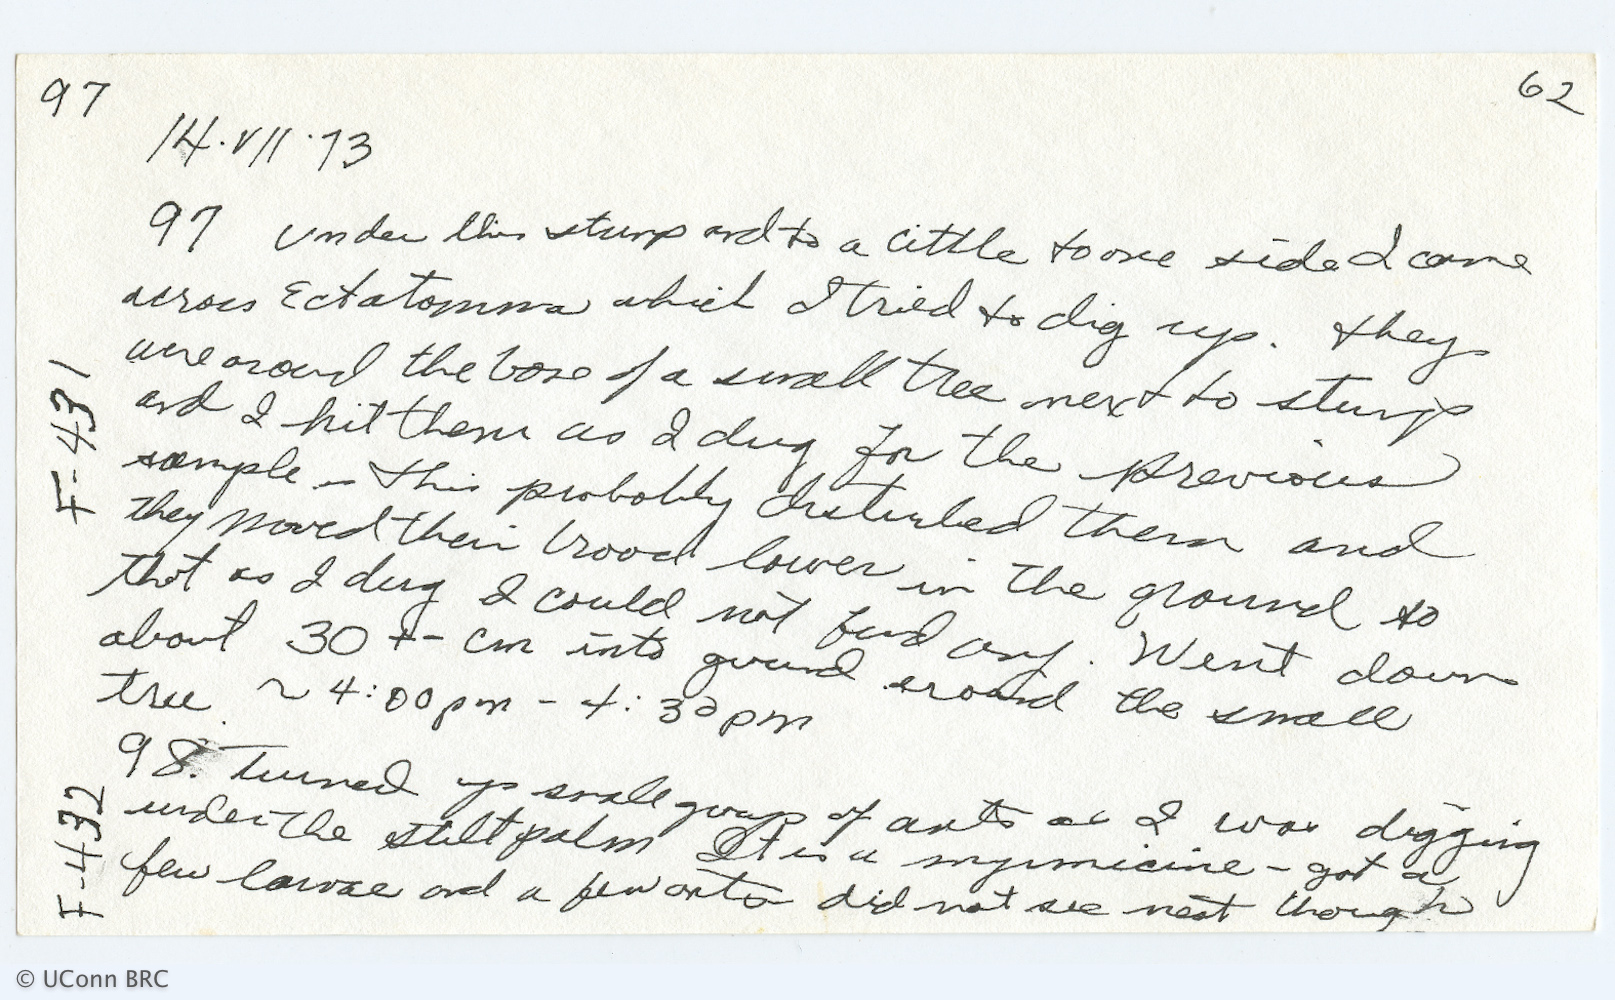 97
62
14.VII.73
97 under this stump and to a little to one side I came
across Ectatomma which I tried to dig up. They
were around the base of a small tree next to stump
and I hit them as I dug for the previous
sample - this probably disturbed them and
they moved their brood lower in the ground so
that as I dug I could not find any. Went down
about 30 +- cm into ground around the small
tree. ~ 4:00pm - 4:30pm
98. Turned up small group of ants as I was digging
under the stilt palm It is a myrmicine - got a
few larvae and a few ants did not see nest though
F-431
F-432
© UConn BRC